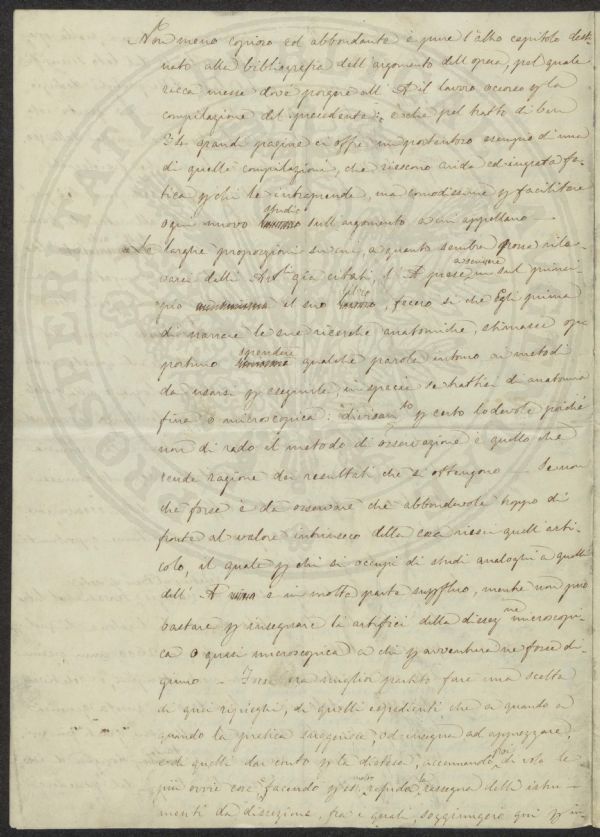 Non meno copioso ed abbondante è pure l'altro capitolo desti-
nato alla bibliografia dell'argomento dell'opera, pel quale
racca messe dovè porgere all'A il lavoro occorso p la
compilazione del precedente: e che pel tratto di ben
grandi pagine ci offre un portentoso esempio di una
di quelle compilazioni, che riescono arida ed ingrata fa-
tica p chi le intraprende, ma comodissime p facilitare
ogni nuovo studio sull'argomento a cui appellano —
Le larghe proporzioni su cui, a quanto sembra possa rile-
varsi dalli già citati, l'A prese ascrivere sul princi-
pio il suo libro, fecero sì che Egli prima
di narrare le sue ricerche anatomiche, stimasse op-
portuno spendere qualche parola intorno ai metodi
da usarsi p eseguirle, in specie se trattisi di anatomia
fina o microscopica: p certo lodevole poiché
non di rado il metodo di osservazione è quello che
rende ragione dei resultati che si ottengono — Se non
che forse è da osservare che abbondevole troppo di
fronte al valore intrinseco della cosa riesca quell'arti-
colo, il quale p chi si occupi di studi analoghi a quelli
dell'A è in molta parte supfluo, mentre non può
bastare p insegnare li artifici della dissezne microscopi-
ca o quasi microscopica a chi p avventura ne fosse di-
giuno — Forse era miglior partito fare una scelta
di quei ripieghi, di quelli espedienti che a quando a
quando la pratica suggerisce, od insegna ad apprezzare,
e di quelli dar conto p la distesa, accennando poi di volo le
più ovvie cose, facendo p es. rapida la rassegna delli istru-
menti da dissezione, fra i quali, soggiungerò qui p in-